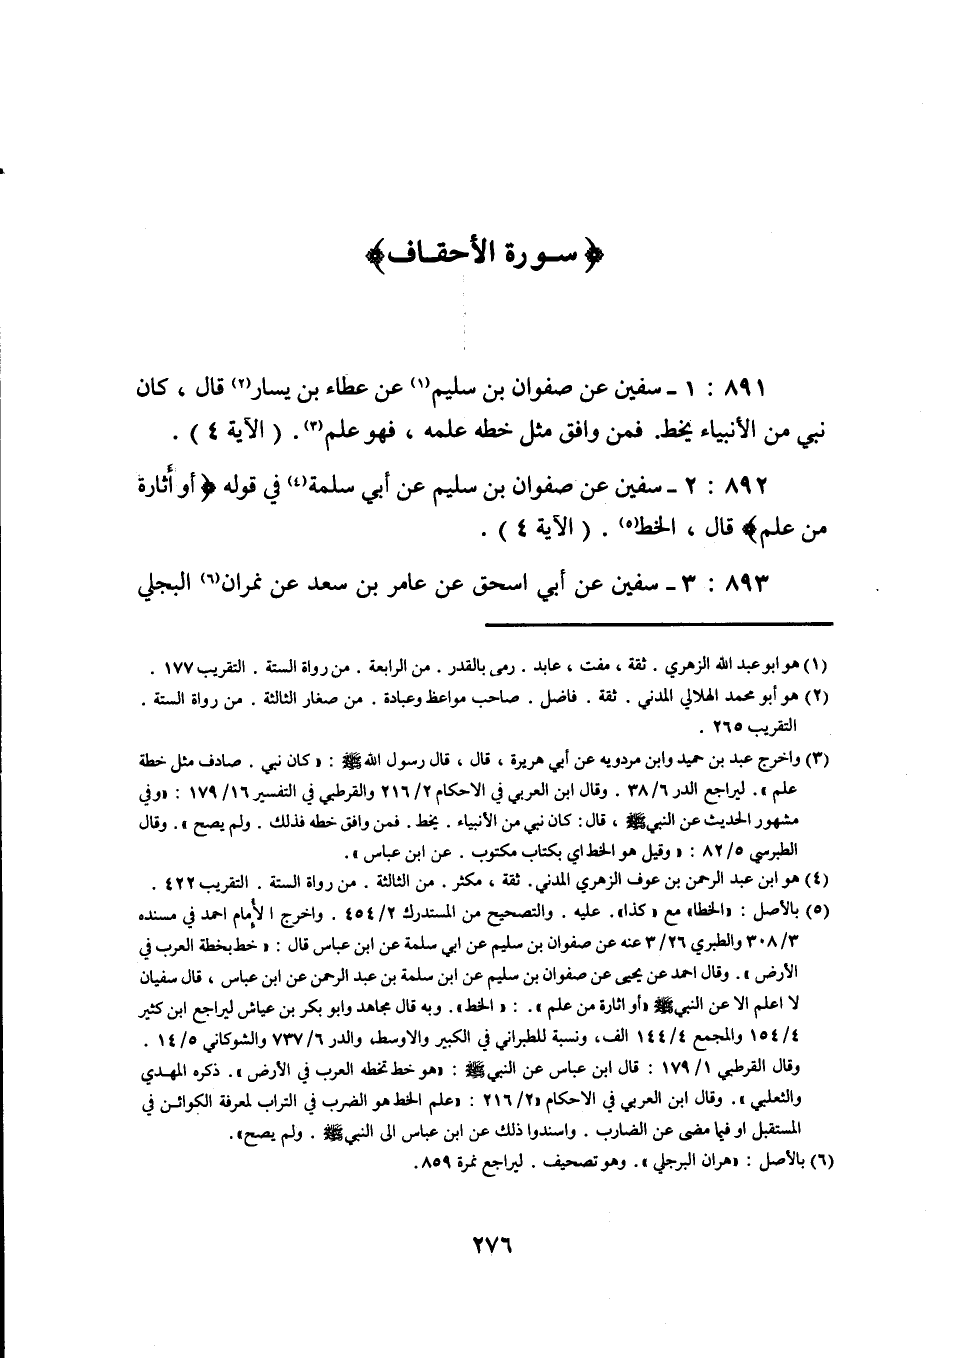 ﴿ ســورة الأحقــاف﴾
٨٩١ : ١ ـ سفين عن صفوان بن سليم(١) عن عطاء بن يسار(٢) قال ، كان
نبي من الأنبياء يخط. فمن وافق مثل خطه علمه ، فهو علم(٣). ( الآية ٤ ) .
٨٩٢ : ٢ ـ سفين عن صفوان بن سليم عن أبي سلمة(٤) في قوله ﴿ أو أثارة
من علم﴾ قال ، الخط(٥) . ( الآية ٤ ) .
٨٩٣ : ٣ ـ سفين عن أبي اسحق عن عامر بن سعد عن نمران(٦) البجلي
(١) هو ابو عبد الله الزهري . ثقة ، مفت ، عابد . رمى بالقدر . من الرابعة . من رواة الستة . التقريب ١٧٧ .
(٢) هو أبو محمد الهلالي المدني . ثقة . فاضل . صاحب مواعظ وعبادة . من صغار الثالثة . من رواة الستة .
التقريب ٢٦٥ .
(٣) واخرج عبد بن حميد وابن مردويه عن أبي هريرة ، قال ، قال رسول الله ﷺ : « كان نبي . صادف مثل خطة
علم » . ليراجع الدر ٦/ ٣٨ . وقال ابن العربي في الاحكام ٢/ ٢١٦ والقرطبي في التفسير ١٦/ ١٧٩ : «وفي
مشهور الحديث عن النبي ﷺ ، قال : كان نبي من الأنبياء . يخط . فمن وافق خطه فذلك . ولم يصح » . وقال
الطبرسي ٥/ ٨٢ : « وقيل هو الخط اي بكتاب مكتوب . عن ابن عباس » .
(٤) هو ابن عبد الرحمن بن عوف الزهري المدني. ثقة ، مكثر . من الثالثة . من رواة الستة . التقريب ٤٢٢ .
(٥) بالأصل : «الخطا» مع « كذا». عليه . والتصحيح من المستدرك ٢/ ٤٥٤ . واخرج الأمام احمد في مسنده
٣/ ٣٠٨ والطبري ٢٦/ ٣ عنه عن صفوان بن سليم عن ابي سلمة عن ابن عباس قال : « خط بخطة العرب في
الأرض » . وقال احمد عن يحيى عن صفوان بن سليم عن ابن سلمة بن عبد الرحمن عن ابن عباس ، قال سفيان
لا اعلم الا عن النبي ﷺ «أو اثارة من علم » . : « الخط». وبه قال مجاهد وابو بكر بن عياش ليراجع ابن كثير
٤/ ١٥٤ والمجمع ٤/ ١٤٤ الف، ونسبة للطبراني في الكبير والاوسط، والدر ٦/ ٧٣٧ والشوكاني ٥/ ١٤ .
وقال القرطبي ١/ ١٧٩ : قال ابن عباس عن النبي ﷺ : «هو خط تخطه العرب في الأرض » . ذكره المهدي
والثعلبي » . وقال ابن العربي في الاحكام «٢/ ٢١٦ : «علم الخط هو الضرب في التراب لمعرفة الكوائن في
المستقبل او فيما مضى عن الضارب . واسندوا ذلك عن ابن عباس الى النبي ﷺ . ولم يصح».
(٦) بالأصل : «هران البرجلي » . وهو تصحيف . ليراجع نمرة ٨٥٩.
٢٧٦